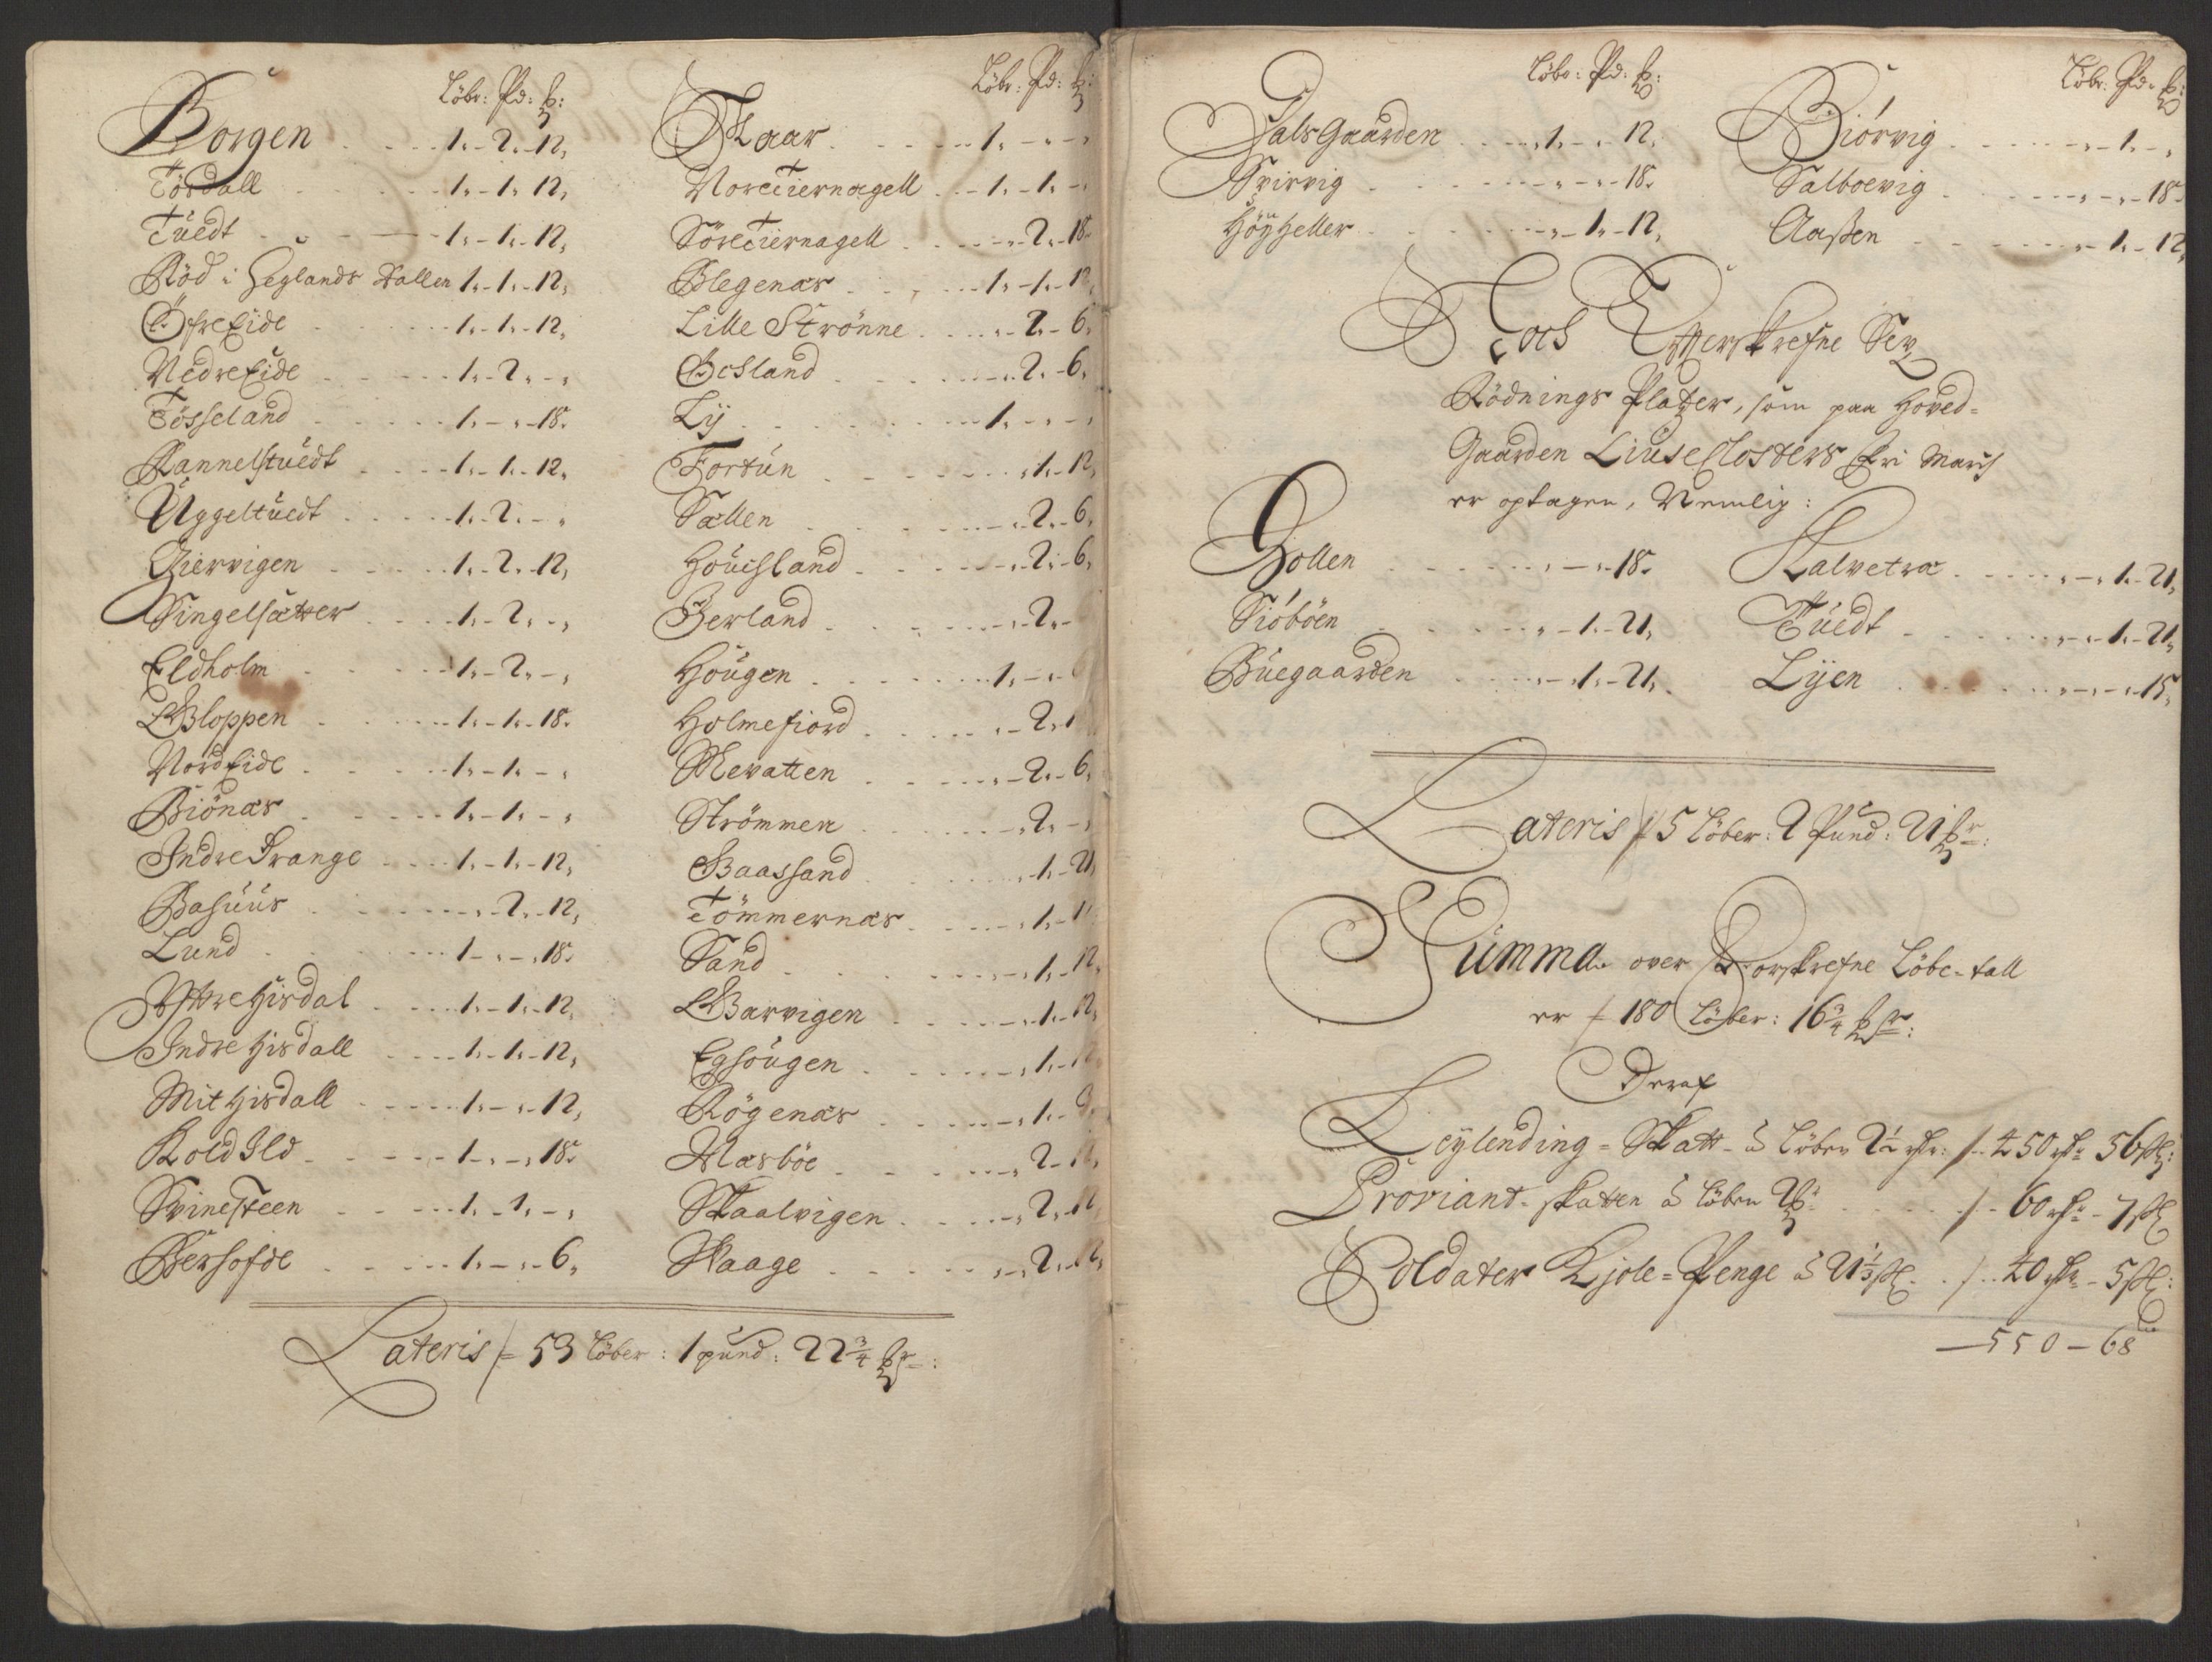 Löbr: Pd: ℔:
Borgen . . . 1.-2.-12,
Tördall . . . 1.-1.-12,
Tuedt . . . 1.-1.-12,
Röd i Heglands dallen 1.-1.-12,
ÖfreEide . . . 1.-1.-12,
NedreEide . . . 1.-2.-,
Tösseland . . . 1.-,-18.
Rannelstuedt . . . 1.-1.-12,
Uggeltuedt . . . 1.-2.-,
Gierrvigen . . . 1.-2.-12,
Singelsætter . . . 1.-2.-,
Eldholm . . . 1.-2.-,
Gloppen . . . 1.-1.-18.
NordEide . . . 1.-1.-,
Biönæs . . . 1.-1.-,
Indre Drange . . . 1.-1.-12,
Bahuus . . . ,-2.-12,
Lund . . . 1.-,-18.
Yttre Hisdal . . . 1.-1.-12,
Indre Hisdall . . . 1.-1.-12,
Mit Hisdall . . . 1.-,-12,
Kold Ild . . . 1.-,-18.
Svinesteen . . . 1.-1.-,
Berhofde . . . 1.-,-6,
Löbr: Pd: ℔:
Skaar . . . 1.-,-,
NoreTiernagell . . . 1.-1.-
SöreTiernagell . . . ,-2.-18.
Blegenæs . . . 1.-1.-12,
Lille Strønne . . . ,-2.-6,
Gosland . . . ,-2.-6,
Lij . . . 1.-,-,
Fortun . . . ,1.-12,
Sallen . . . ,-2.-6,
Houchland . . . ,-2.-6,
Berland . . . ,-2.-
Hougen . . . 1.-,-
Holmefiord . . . ,-2.-1
Mevatten . . . ,-2.-6,
Strömmen . . . ,2.-,
Baassand . . . ,1.-21,
Tömmernæs . . . ,1.-1
Sand . . . ,-,1.-12,
Barvigen . . . ,-,1.-12,
Eghougen . . . ,-,1.-
Rögenæs . . . ,-,1.-
Masböe . . . ,2.-
Skaalvigen . . . ,2.-
Waage . . . ,-2.-
Lateris /= 53 Löber: 1 pund: 22¾ ℔r:
Löbr: Pd: ℔:
Halsgaarden . . . ,1.-,-12,
Svirvig . . . ,-,-18.
Höyheller . . . ,-1.-12,
Löbr: Pd: ℔:
Biörvig . . . ,-1.-,
Salboevig . . . ,-,-18.
Aaßen . . . ,-1.-12,
Noch Efterskrefne Sex
Rödnings Platzer, som paa Hoved-
Gaarden LiuseClosters Fri March
er optagen, Nemlig:
Hollen . . . ,-,-18.
Siöböen . . . ,-1.-21,
Buegaarden . . . ,-1.-21,
Kalvetræ . . . ,-,1.-21,
Tuedt . . . ,-,1.-21,
Lijen . . . ,-,-15,
Lateris /= 5 Löber: 2 Pund: 21 ℔r:
Summa over Forskrefne Löbe-tall
er /= 180 Löber: 16¾ ℔r:
Deraf
Leylending-Skatt- à Löben 2½ rdr: /- 450 rdr 56 ß:
Proviant-skatten à Löben . . . /- 60 rdr - 7 ß
Soldater Kjole-Penge à 21⅓ ß . . /- 40 rdr - 5 ß:
— 550 — 68